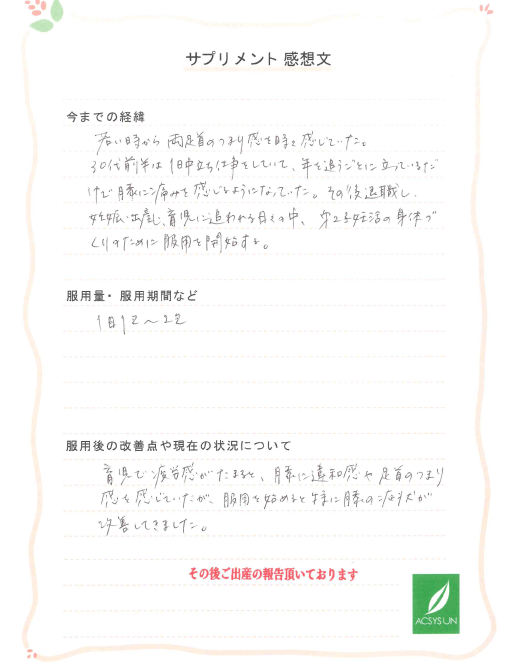 サプリメント 感想文
今までの経緯
若い時から両足首のつまり感を時々感じていた。
30代前半は1日中立ち仕事をしていて、年を追うごとに立っているだ
けで膝に痛みを感じるようになっていた。その後退職し、
妊娠・出産し、育児に追われる日々の中、第2子妊活の身体づ
くりのために服用を開始する。
服用量・服用期間など
1日1包〜2包
服用後の改善点や現在の状況について
育児で疲労感がたまると、膝に違和感や足首のつまり
感を感じていたが、服用を始めると特に膝の症状が
改善してきました。
その後ご出産の報告頂いております
ACSYSUN